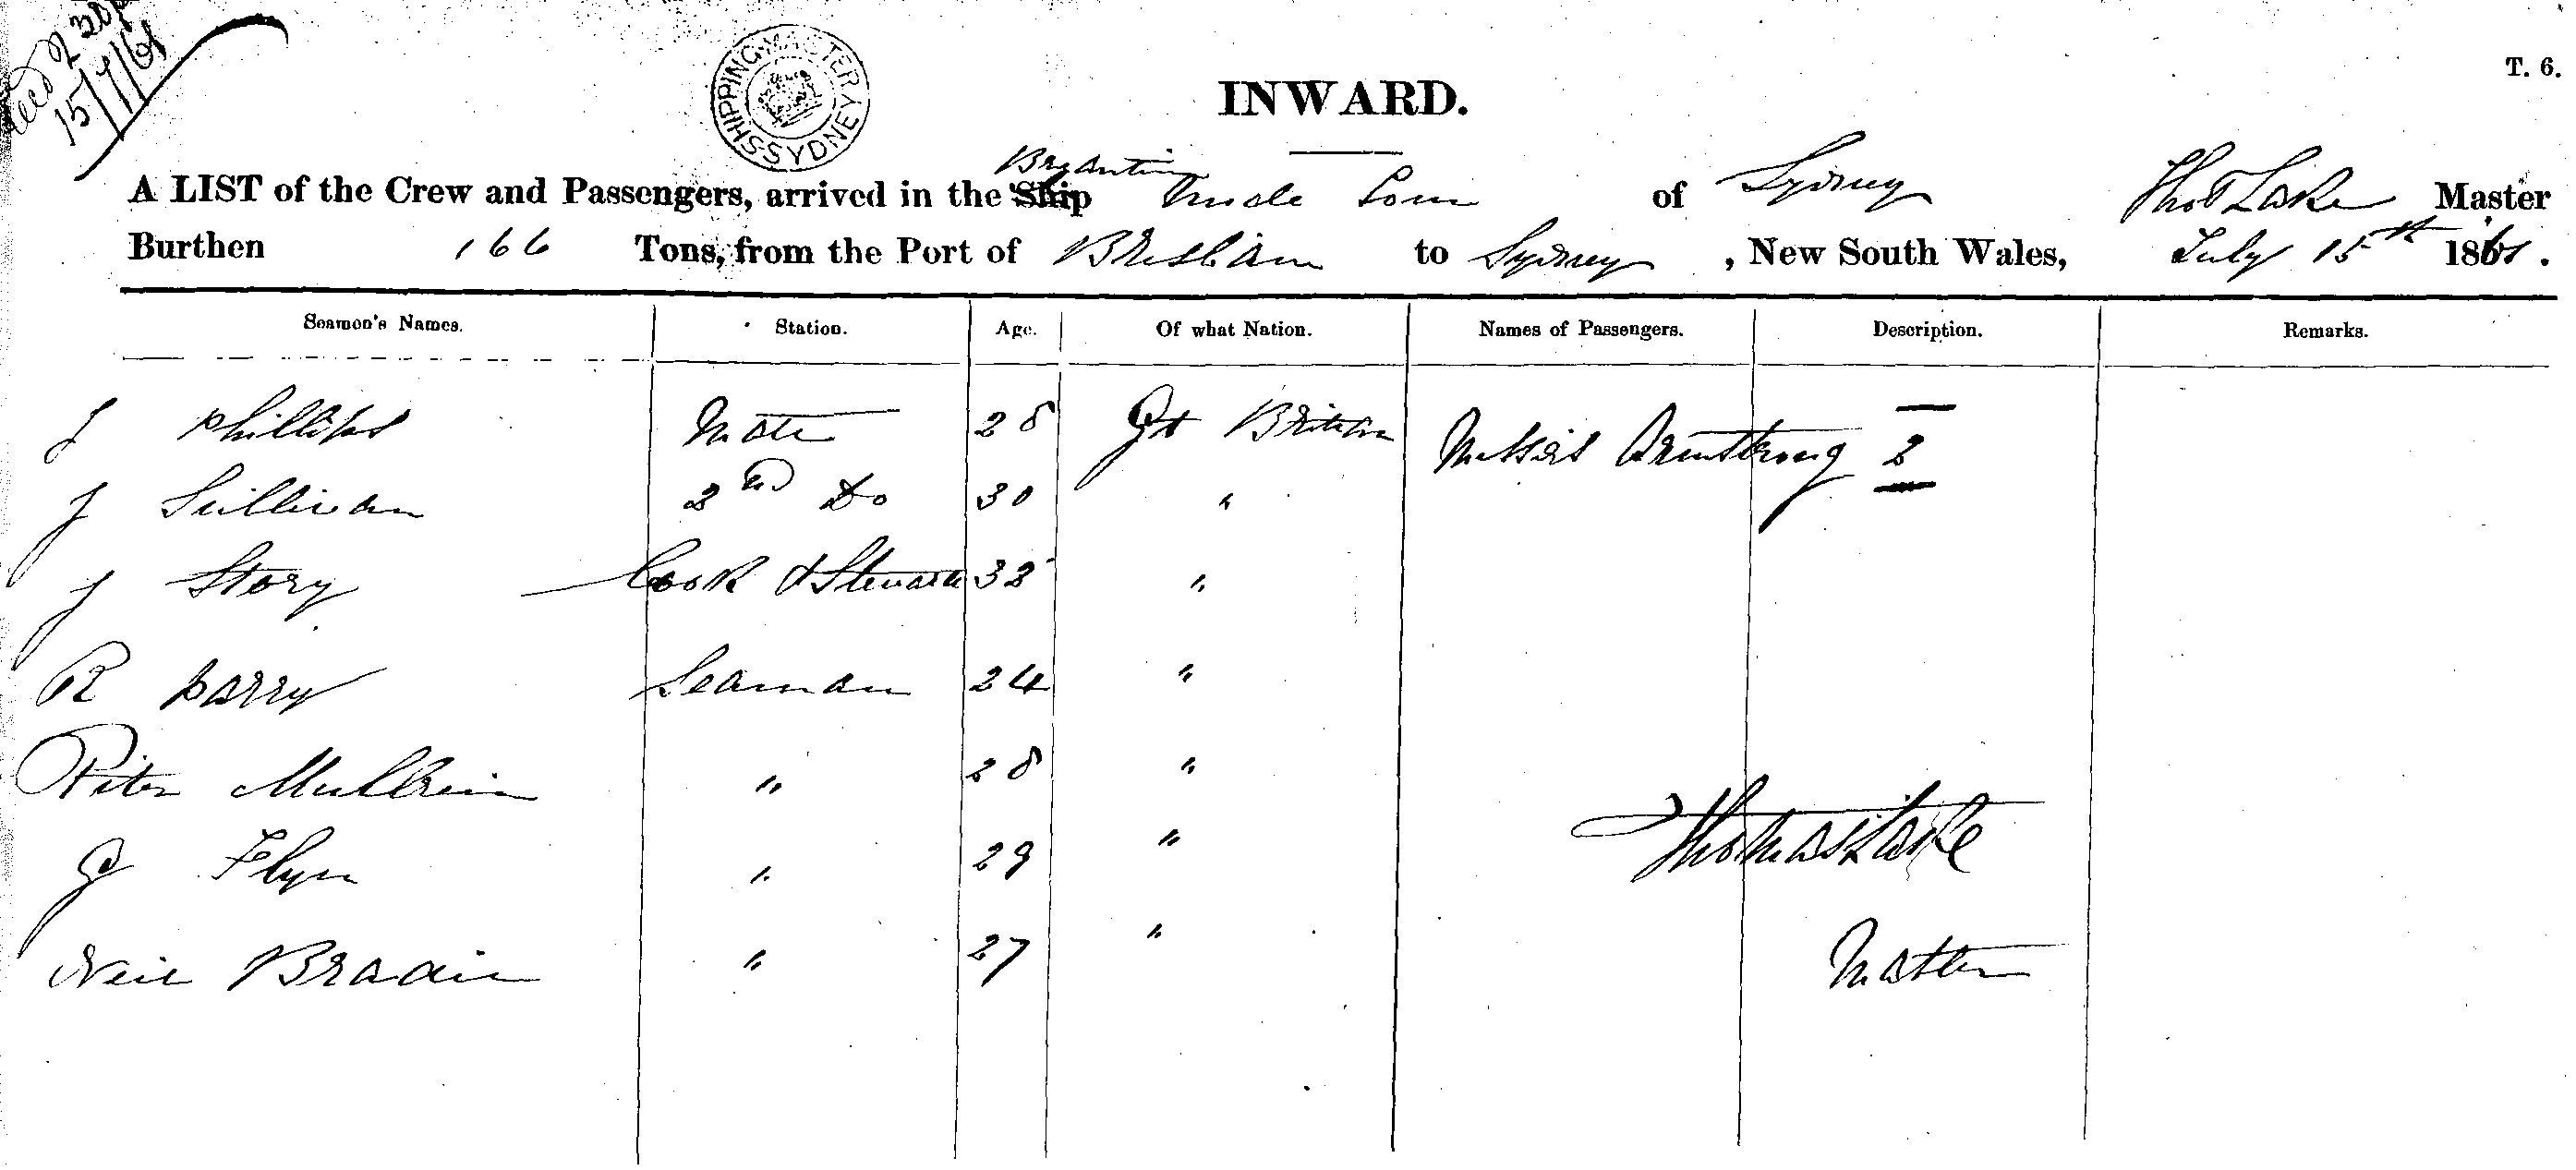 Recd 2 30 p
15/7/61
SHIPPING MASTER SYDNEY
T. 6.
INWARD.
Brigantine
A LIST of the Crew and Passengers, arrived in the Ship Uncle Tom of Sydney Thos Lake Master
Burthen 166 Tons, from the Port of Brisbane to Sydney, New South Wales, July 15th 1861.
Seamen's Names. Station. Age. Of what Nation. Names of Passengers. Description. Remarks.
J Phillips Mate 28 Gt Britain Messrs Armstrong 2
J Sullivan 2nd Do 30 "
J Story Cook & Steward 32 "
R Parry Seaman 24 "
Peter " 28 "
J Flyn " 29 " Thomas Lake
Neil " 27 " Master